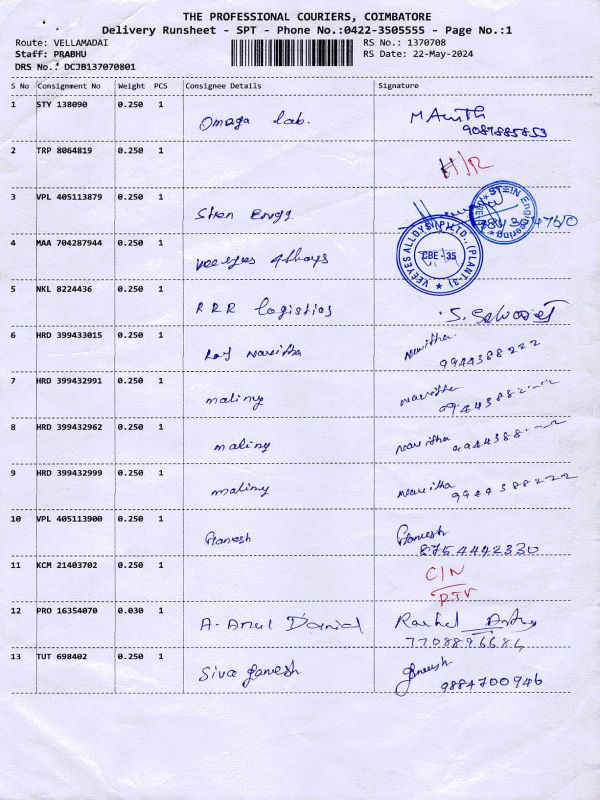 THE PROFESSIONAL COURIERS, COIMBATORE
Delivery Runsheet - SPT - Phone No.:0422-3505555 - Page No.:1
Route: VELLAMADAI RS No.: 1370708
Staff: PRABHU RS Date: 22-May-2024
DRS No.: DCJB137070801
S No Consignment No Weight PCS Consignee Details Signature
1 STY 138090 0.250 1 Omega Lab.
9087885853
2 TRP 8064819 0.250 1
3 VPL 405113879 0.250 1 Shen Engg
4 MAA 704287944 0.250 1 veeyes Alloys
VEEYES ALLOYS (P) LTD., (PLANT-3)
CBE - 35
5 NKL 8224436 0.250 1 RRR Logistics
6 HRD 399433015 0.250 1 Navitha navitha
9944388222
7 HRD 399432991 0.250 1 maliny navitha
8 HRD 399432962 0.250 1 maliny navitha
9 HRD 399432999 0.250 1 maliny navitha
9944388222
10 VPL 405113900 0.250 1 Ganesh Ganesh
8754442330
11 KCM 21403702 0.250 1 C/N
RTV
12 PRO 16354070 0.030 1 A. Arul Daniel Rachel
7708896684
13 TUT 698402 0.250 1 Siva ganesh ganesh
9884700946